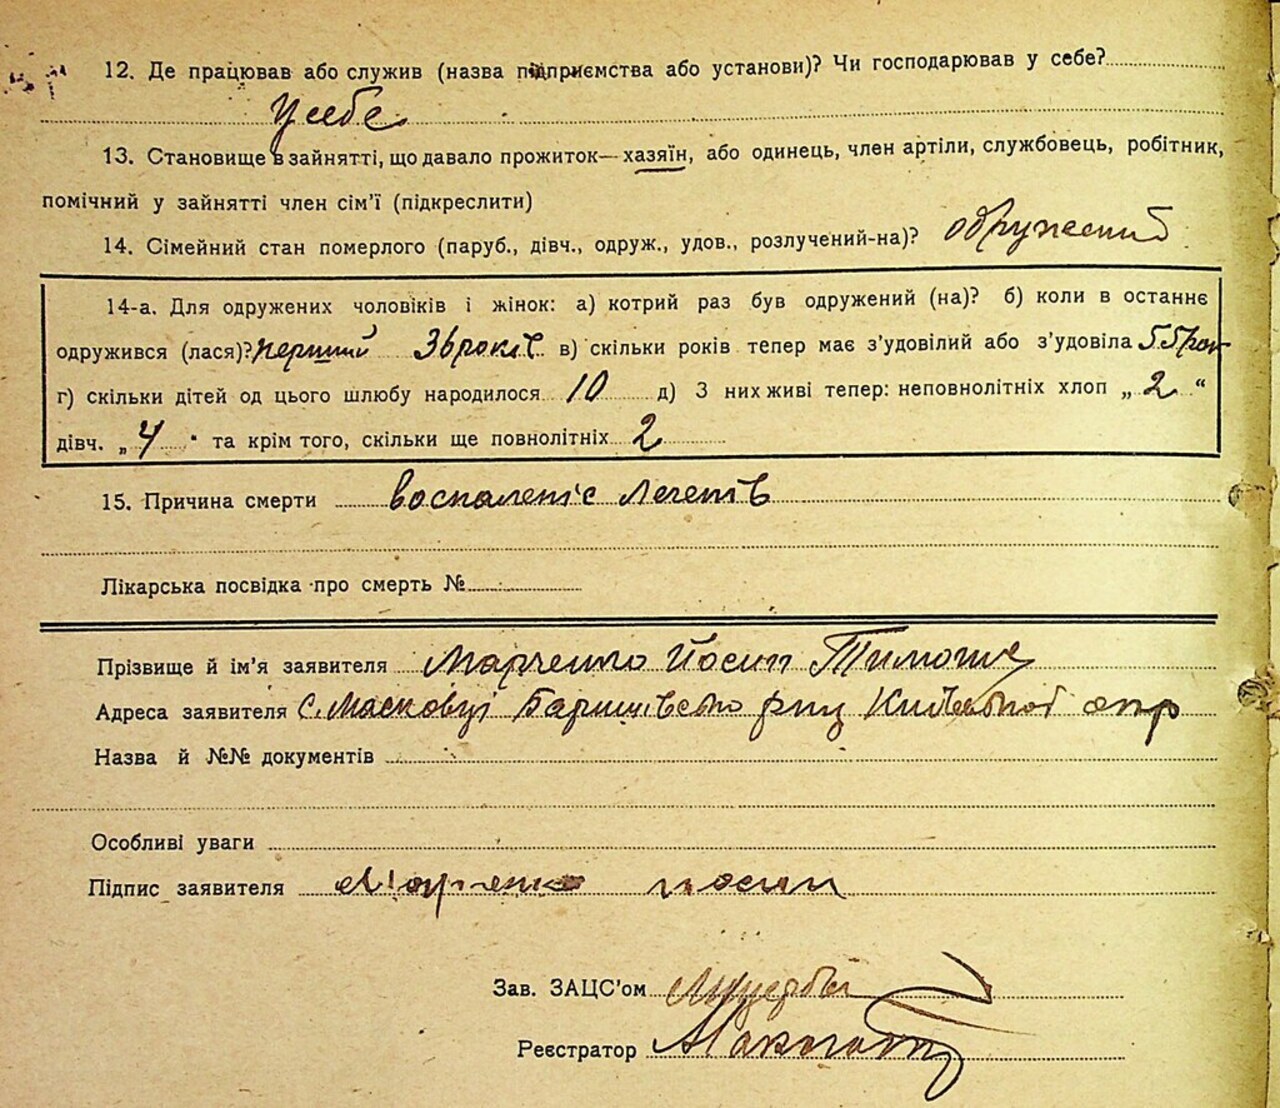 12. Де працював або служив (назва підприємства або установи)? Чи господарював у себе?
У себе
13. Становище в зайнятті, що давало прожиток—хазяїн, або одинець, член артіли, службовець, робітник,
помічний у зайнятті член сім’ї (підкреслити)
14. Сімейний стан померлого (паруб., дівч., одруж., удов., розлучений-на)? одружений
14-а. Для одружених чоловіків і жінок: а) котрий раз був одружений (на)? б) коли в останнє
одружився (лася)? перший 36 років в) скільки років тепер має з’удовілий або з’удовіла 55
г) скільки дітей од цього шлюбу народилося 10 д) З них живі тепер: неповнолітніх хлоп „ 2 “
дівч. „ 4 “ та крім того, скільки ще повнолітніх 2
15. Причина смерти воспаленіє легенів
Лікарська посвідка про смерть №
Прізвище й ім’я заявителя Марченко Йосип
Адреса заявителя С. Масковці Баришівсько
Назва й №№ документів
Особливі уваги
Підпис заявителя Марченко йосип
Зав. ЗАЦС’ом
Реєстратор